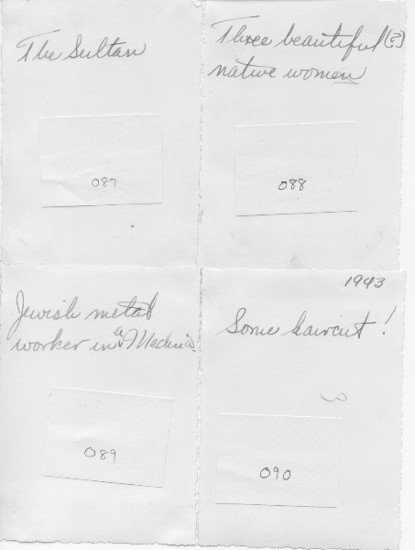 The Sultan
087
Three beautiful(?)
native women
088
Jewish metal
worker in a Medina
089
1943
Some haircut!
090